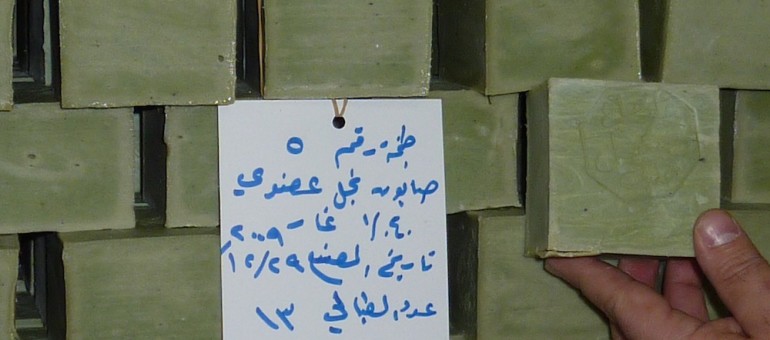 طبخة رقم ٥
صابون نخل عضوي
٤٠٪ غار ٢٠٠٩
تاريخ الصنع ١٢/٢٩
عدد الطبالي ١٣